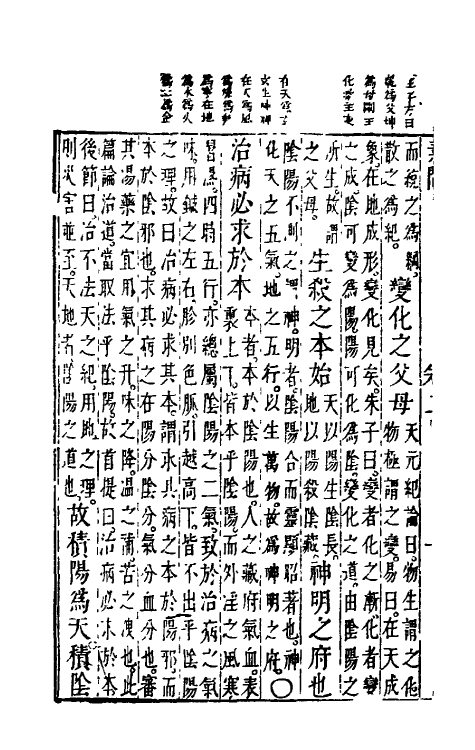 乾為父坤
玄生神神
在天為風
為木為火
而疏之為綱
散之為紀
變化之父母
天元紀論曰物生謂之化
物極謂之變易曰在天成
象在地成形變化見矣朱子曰變者化之漸化者變
之成陰可變為陽陽可化為陰變化之道由陰陽之
所生故謂
之父母
生殺之本始
天以陽生陰長
地以陽殺陰藏
神明之府也
陰陽不測之謂神明者陰陽合而靈顯昭著也神
化天之五氣地之五行以生萬物故為神明之府○
治病必求於本
本者本於陰陽也人之藏府氣血表
裏上下皆本乎陰陽而外淫之風寒
暑濕四時五行亦總屬陰陽之二氣致於治病之氣
味用鍼之左右診別色脈引越高下皆不出乎陰陽
之理故曰治病必求其本謂求其病之本於陽邪而
本於陰邪也求其病之在陽分陰分氣分血分也審
其湯藥之宜用氣之升味之降溫之補苦之洩也此
篇論治道當取法乎陰陽故首提曰治病必求於本
後節曰治不法天之紀用地之理
則災害並至天地者陰陽之道也
故積陽為天積陰